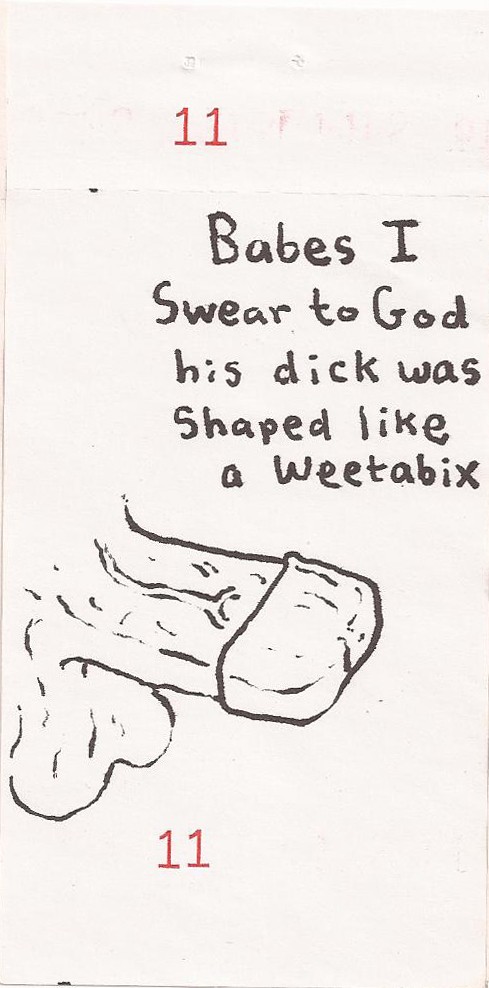 11
Babes I
Swear to God
his dick was
Shaped like
a Weetabix
11